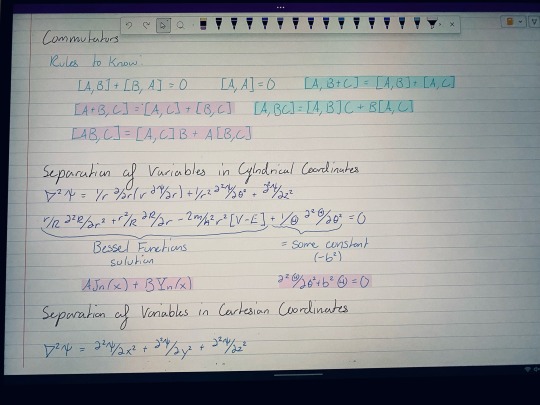 Commutators
Rules to Know:
[A,B] + [B,A] = 0   [A,A] = 0   [A,B+C] = [A,B] + [A,C]
[A+B,C] = [A,C] + [B,C]   [A,BC] = [A,B]C + B[A,C]
[AB,C] = [A,C]B + A[B,C]
Separation of Variables in Cylindrical Coordinates
∇²Ψ = 1/r ∂/∂r(r ∂Ψ/∂r) + 1/r² ∂²Ψ/∂θ² + ∂²Ψ/∂z²
r/R ∂²R/∂r² + r²/R ∂R/∂r - 2m/ħ² r² [V-E] + 1/Θ ∂²Θ/∂θ² = 0
Bessel Functions   = some constant
solution   (-b²)
AJn(x) + BYn(x)   ∂²Θ/∂θ² + b²Θ = 0
Separation of Variables in Cartesian Coordinates
∇²Ψ = ∂²Ψ/∂x² + ∂²Ψ/∂y² + ∂²Ψ/∂z²